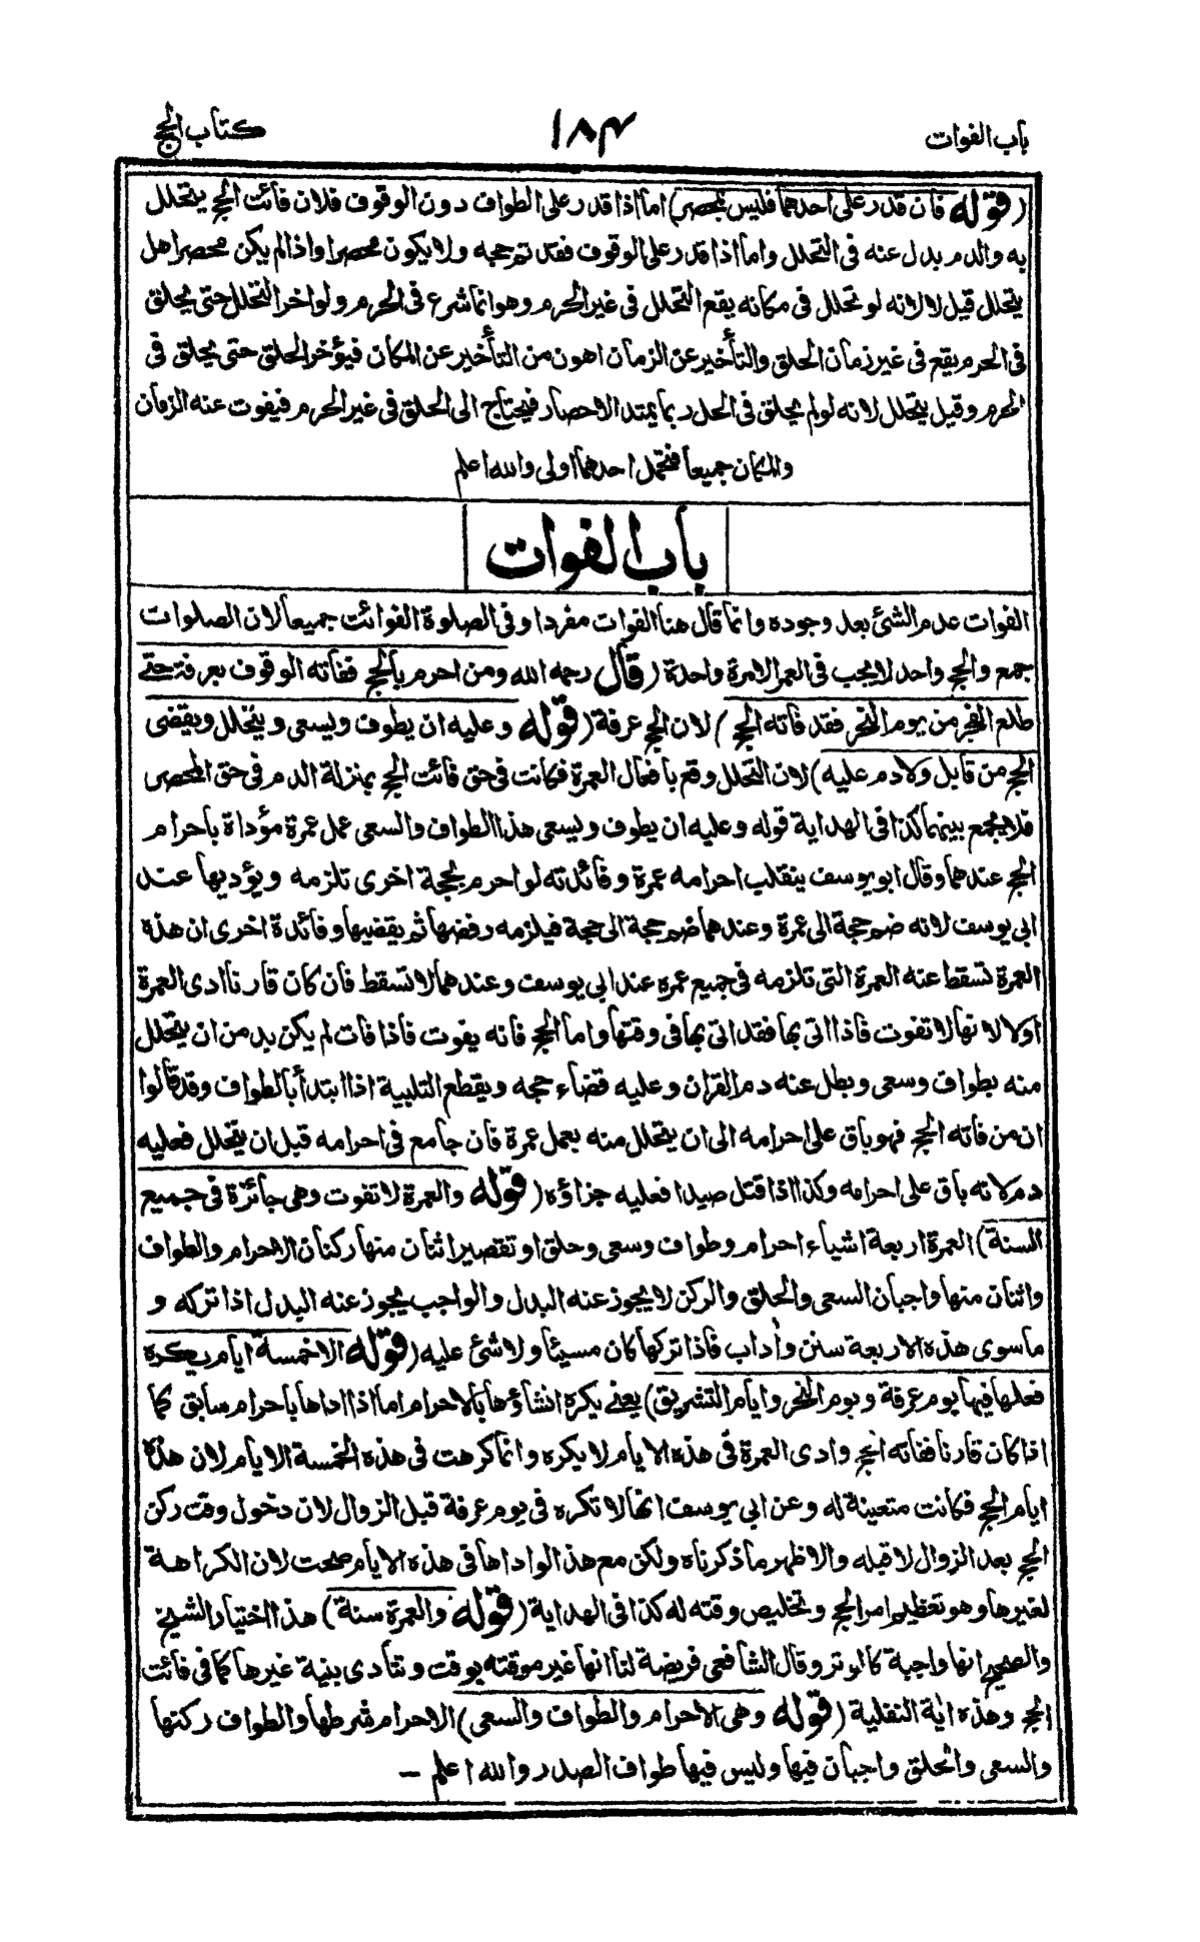 باب الفوات ۱۸۴ كتاب الحج
(قوله فان قدر على احدهما فليس بمحصر) اما اذا قدر على الطواف دون الوقوف فلان فائت الحج يتحلل
به والدم بدل عنه فى التحلل واما اذا قدر على الوقوف فقد تم حجه ولا يكون محصرا واذا لم يكن محصرا هل
يتحلل قيل لا لانه لو تحلل فى مكانه يقع التحلل فى غير الحرم وهو انما شرع فى الحرم ولو اخر التحلل حتى يحلق
فى الحرم يقع فى غير زمان الحلق والتأخير عن الزمان اهون من التأخير عن المكان فيؤخر الحلق حتى يحلق فى
الحرم وقيل يتحلل لانه لو لم يحلق فى الحل ربما يمتد الاحصار فيحتاج الى الحلق فى غير الحرم فيفوت عنه الزمان
والمكان جميعا فتحمل احدهما اولى والله اعلم
باب الفوات
الفوات عدم الشئ بعد وجوده وانما قال هنا الفوات مفردا وفى الصلوة الفوائت جميعا لان الصلوات
جمع والحج واحد لا يجب فى العمر الا مرة واحدة (قال رحمه الله ومن احرم بالحج ففاته الوقوف بعرفة حتى
طلع الفجر من يوم النحر فقد فاته الحج) لان الحج عرفة (قوله وعليه ان يطوف ويسعى ويتحلل ويقضى
الحج من قابل ولا دم عليه) لان التحلل وقع بافعال العمرة فكانت فى حق فائت الحج بمنزلة الدم فى حق المحصر
فلا يجمع بينهما كذا فى الهداية قوله وعليه ان يطوف ويسعى هذا الطواف والسعى عمل عمرة مؤداة باحرام
الحج عندهما وقال ابو يوسف ينقلب احرامه عمرة وفائدته لو احرم بحجة اخرى تلزمه ويؤديها عند
ابى يوسف لانه ضم حجة الى عمرة وعندهما ضم حجة الى حجة فيلزمه رفضها ثم يقضيها وفائدة اخرى ان هذه
العمرة تسقط عنه العمرة التى تلزمه فى جميع عمره عند ابى يوسف وعندهما لا تسقط فان كان قارنا ادى العمرة
اولا لانها لا تفوت فاذا اتى بها فقد اتى بها فى وقتها واما الحج فانه يفوت فاذا فات لم يكن بد من ان يتحلل
منه بطواف وسعى وبطل عنه دم القران وعليه قضاء حجه ويقطع التلبية اذا ابتدأ بالطواف وقد قالوا
ان من فاته الحج فهو باق على احرامه الى ان يتحلل منه بعمل عمرة فان جامع فى احرامه قبل ان يتحلل فعليه
دم لانه باق على احرامه وكذا اذا قتل صيدا فعليه جزاؤه (قوله والعمرة لا تفوت وهى جائزة فى جميع
السنة) العمرة اربعة اشياء احرام وطواف وسعى وحلق او تقصير اثنان منها ركنان الاحرام والطواف
واثنان منها واجبان السعى والحلق والركن لا يجوز عنه البدل والواجب يجوز عنه البدل اذا تركه و
ما سوى هذه الاربعة سنن وآداب فاذا تركها كان مسيئا ولا شئ عليه (قوله الا خمسة ايام يكره
فعلها فيها يوم عرفة ويوم النحر وايام التشريق) يعنى يكره انشاؤها بالاحرام اما اذا اداها باحرام سابق كما
اذا كان قارنا ففاته الحج وادى العمرة فى هذه الايام لا يكره وانما كرهت فى هذه الخمسة الايام لان هذه
ايام الحج فكانت متعينة له وعن ابى يوسف انها لا تكره فى يوم عرفة قبل الزوال لان دخول وقت ركن
الحج بعد الزوال لا قبله والاظهر ما ذكرناه ولكن مع هذا لو اداها فى هذه الايام صحت لان الكراهة
لغيرها وهو تعظيم امر الحج وتخليص وقته له كذا فى الهداية (قوله والعمرة سنة) هذا اختيار الشيخ
والصحيح انها واجبة كالوتر وقال الشافعى فريضة لنا انها غير موقته بوقت وتتأدى بنية غيرها كما فى فائت
الحج وهذه اية النفلية (قوله وهى الاحرام والطواف والسعى) الاحرام شرطها والطواف ركنها
والسعى والحلق واجبان فيها وليس فيها طواف الصدر والله اعلم —